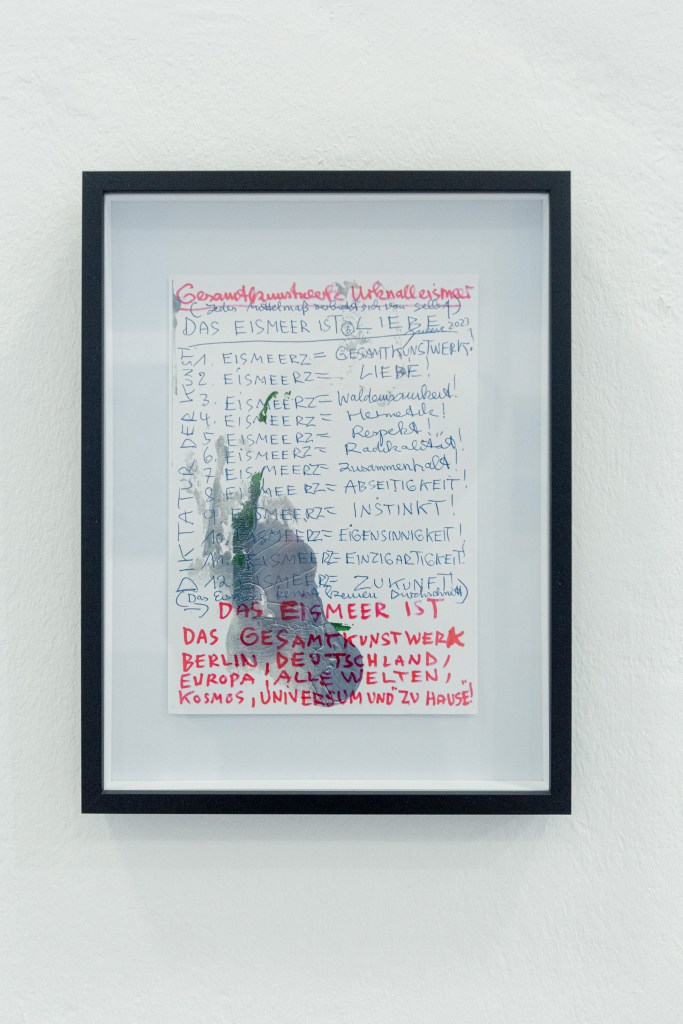 Gesamtkunstwerk Urknalleismeer
(Jedes Mittelmaß verbietet sich von selbst)
DAS EISMEER IST LIEBE
2023
DIKTATUR DER KUNST
1. EISMEERZ = GESAMTKUNSTWERK!
2. EISMEERZ = LIEBE!
3. EISMEERZ = Waldeinsamkeit!
4. EISMEERZ = Hermetik!
5. EISMEERZ = Respekt!
6. EISMEERZ = Radikalität!
7. EISMEERZ = Zusammenhalt!
8. EISMEERZ = ABSEITIGKEIT!
9. EISMEERZ = INSTINKT!
10. EISMEERZ = EIGENSINNIGKEIT!
11. EISMEERZ = EINZIGARTIGKEIT!
12. EISMEERZ = ZUKUNFT!
(Das Eismeer kennt keinen Durchschnitt)
DAS EISMEER IST
DAS GESAMTKUNSTWERK
BERLIN, DEUTSCHLAND,
EUROPA, ALLE WELTEN,
KOSMOS, UNIVERSUM UND "ZU HAUSE"!